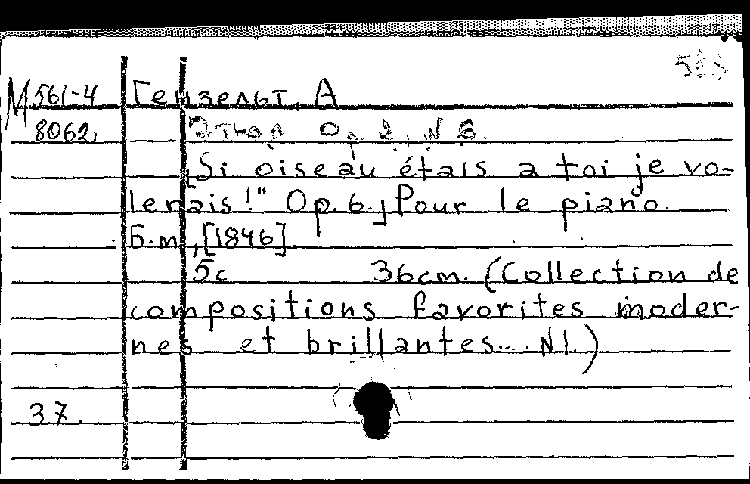 М 561-4 Гензельт, А
8062,
Этюд Op. 2, N 6.
[„Si oiseau étais a toi je vo-
lerais!" Op. 6.] Pour le piano.
Б.м., [1846].
5с 36cm. (Collection de
compositions favorites moder-
nes et brillantes... N1.)
37.